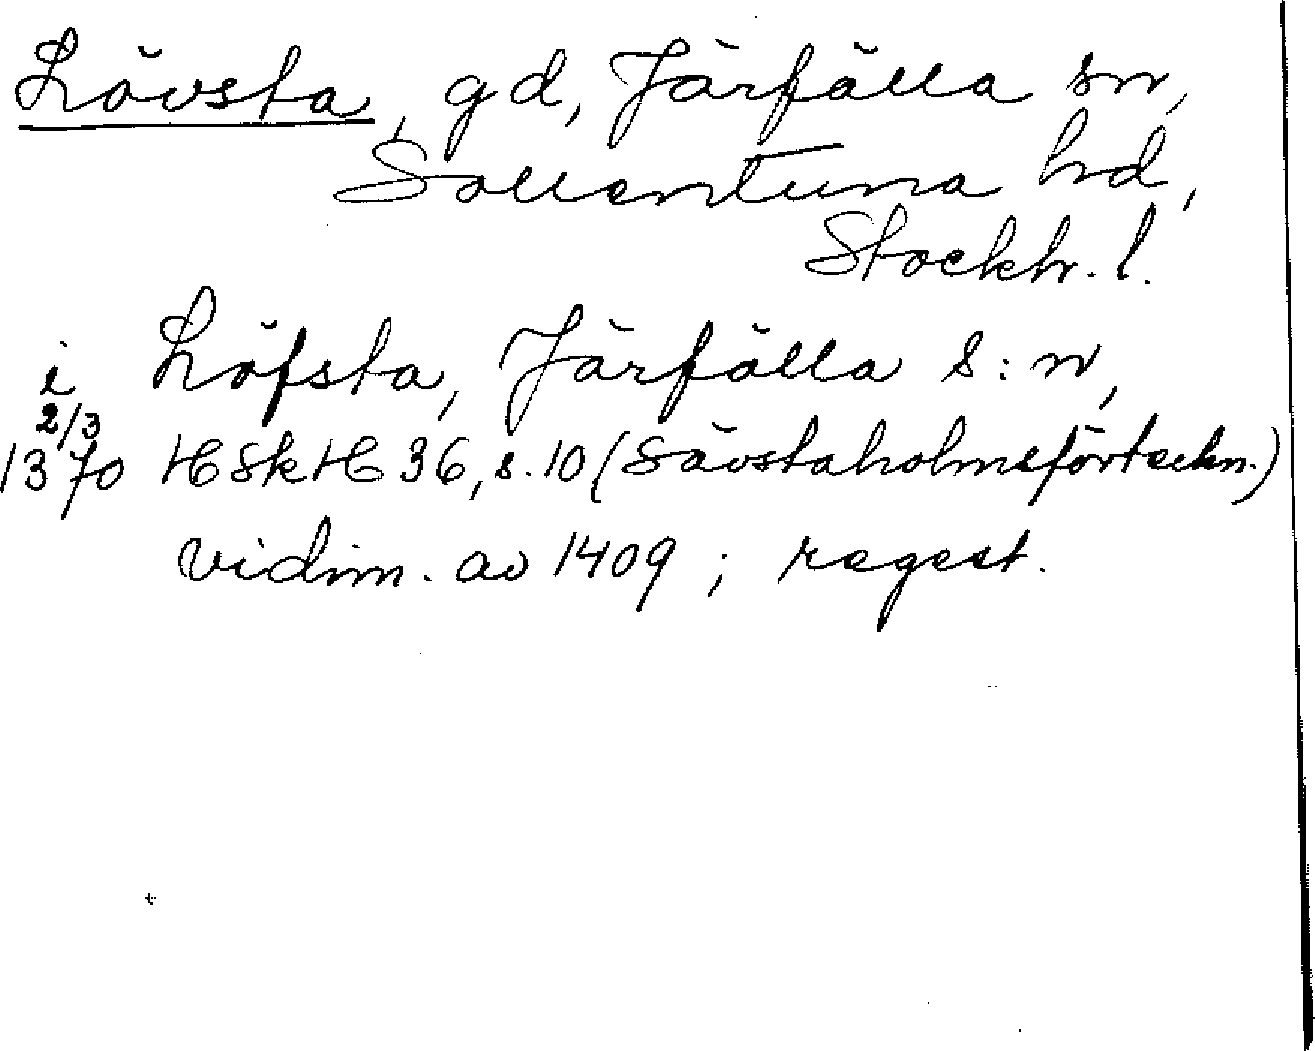 Lövsta, gd, Järfälla sn,
Sollentuna hd,
Stockh. l.
i Löfsta, Järfälla s:n,
2/3
1370 HSkH 36, s. 10 (Sävstaholmsförteckn.)
vidim. av 1409; regest.